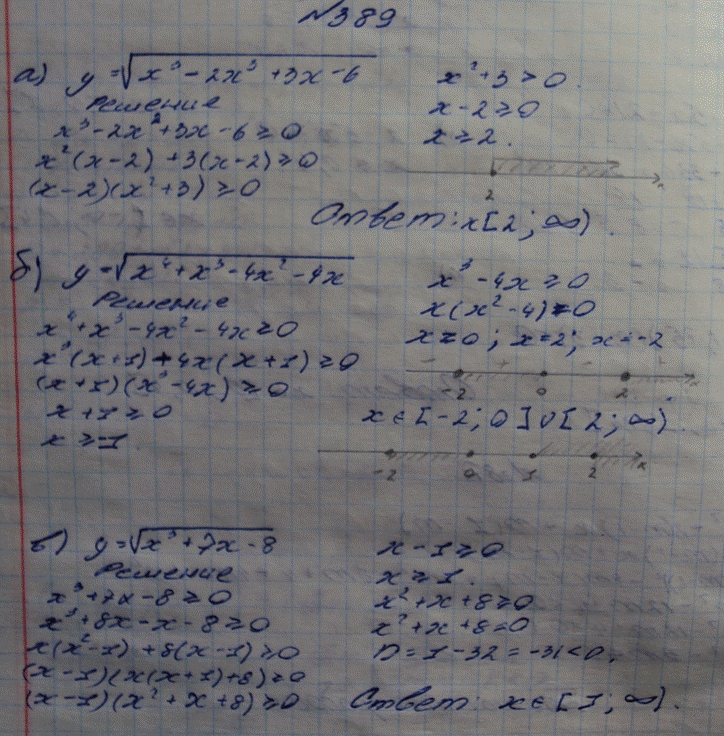 №389
а) y=√x³-2x³+3x-6
Решение
x³-2x²+3x-6≥0
x²(x-2)+3(x-2)≥0
(x-2)(x²+3)≥0
x²+3>0.
x-2≥0
x≥2.
2
Ответ: x[2;∞).
б) y=√x⁴+x³-4x²-4x
Решение
x⁴+x³-4x²-4x≥0
x³(x+1)-4x(x+1)≥0
(x+1)(x³-4x)≥0
x+1≥0
x≥-1.
x³-4x≥0
x(x²-4)=0
x=0; x=2; x=-2
- + - +
-2 0 2 x
x∈[-2;0]∪[2;∞).
-2 0 1 2 x
в) y=√x³+7x-8
Решение
x³+7x-8≥0
x³+8x-x-8≥0
x(x²-1)+8(x-1)≥0
(x-1)(x(x+1)+8)≥0
(x-1)(x²+x+8)≥0
x-1≥0
x≥1.
x²+x+8≥0
x²+x+8=0
D=1-32=-31<0.
Ответ: x∈[1;∞).